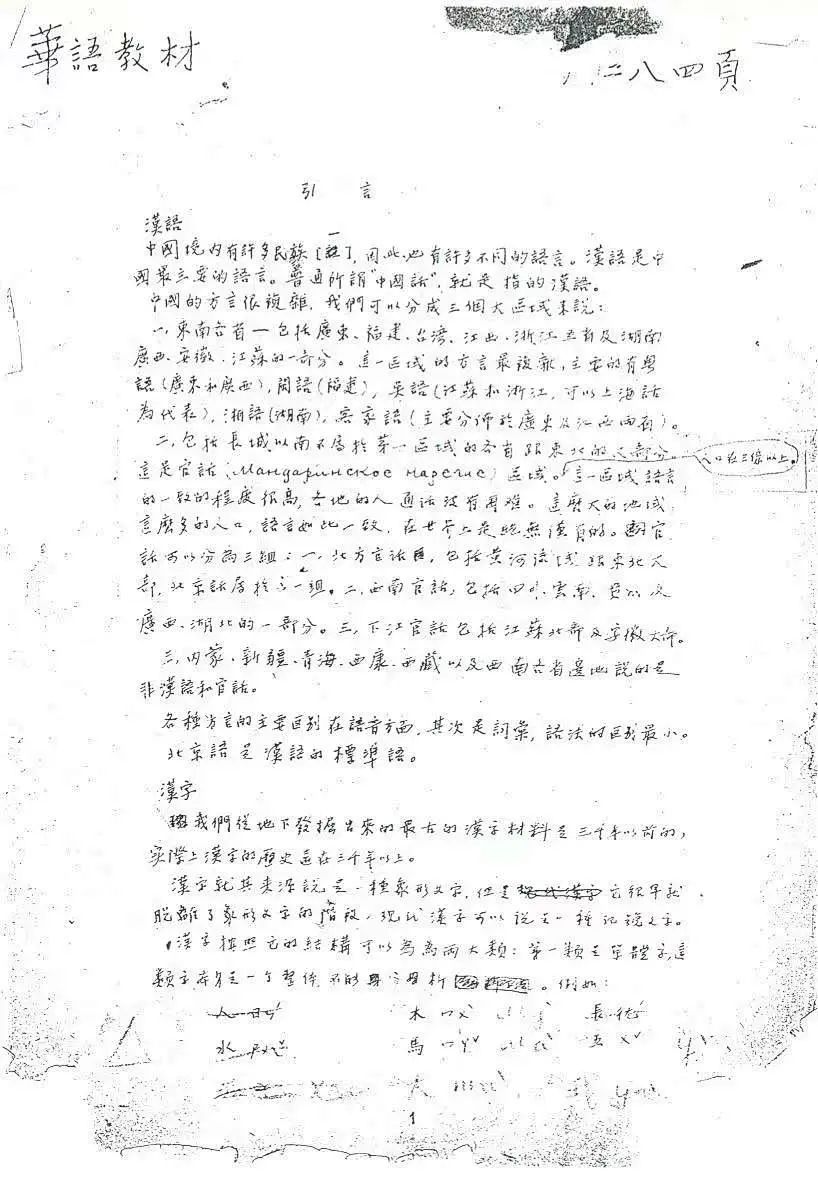 華語教材
二八四頁
引言
漢語
中國境內有許多民族，因此也有許多不同的語言。漢語是中
國最主要的語言。普通所謂"中國話"，就是指的漢語。
中國的方言很複雜，我們可以分成三個大區域來說：
一、東南各省—包括廣東、福建、台灣、江西、浙江五省及湖南
廣西、安徽、江蘇的一部分。這一區域的方言最複雜，主要的有粵
語(廣東和廣西)，閩語(福建)，吳語(江蘇和浙江，可以上海話
為代表)，湘語(湖南)，客家語(主要分佈於廣東及江西兩省)。
二、包括長城以南不屬於第一區域的各省跟東北的大部分。
人口在三億以上。
這是官話(Мандаринское наречие)區域。這一區域語言
的一致的程度很高，各地的人通話沒有困難。這麼大的地域，
這麼多的人口，語言如此一致，在世界上是絕無僅有的。官
話可以分為三組：一、北方官話，包括黃河流域跟東北大
部，北京話屬於這一組。二、西南官話，包括四川、雲南、貴州及
廣西、湖北的一部分。三、下江官話包括江蘇北部及安徽大部。
三、內蒙、新疆、青海、西康、西藏以及西南各省邊地說的是
非漢語和官話。
各種方言的主要區別在語音方面，其次是詞彙，語法的區別最小。
北京語是漢語的標準語。
漢字
我們從地下發掘出來的最古的漢字材料是三千年以前的，
實際上漢字的歷史還在三千年以上。
漢字就其來源說是一種象形文字，但是它很早就
脫離了象形文字的階段，現代漢字可以說是一種記號文字。
漢字按照它的結構可以分為兩大類：第一類是單體字，這
類字本身是一個整體，不能再分析。例如：
木 ㄇㄨˋ 長
水
馬 ㄇㄚˇ 五 ㄨˇ
大 我
1